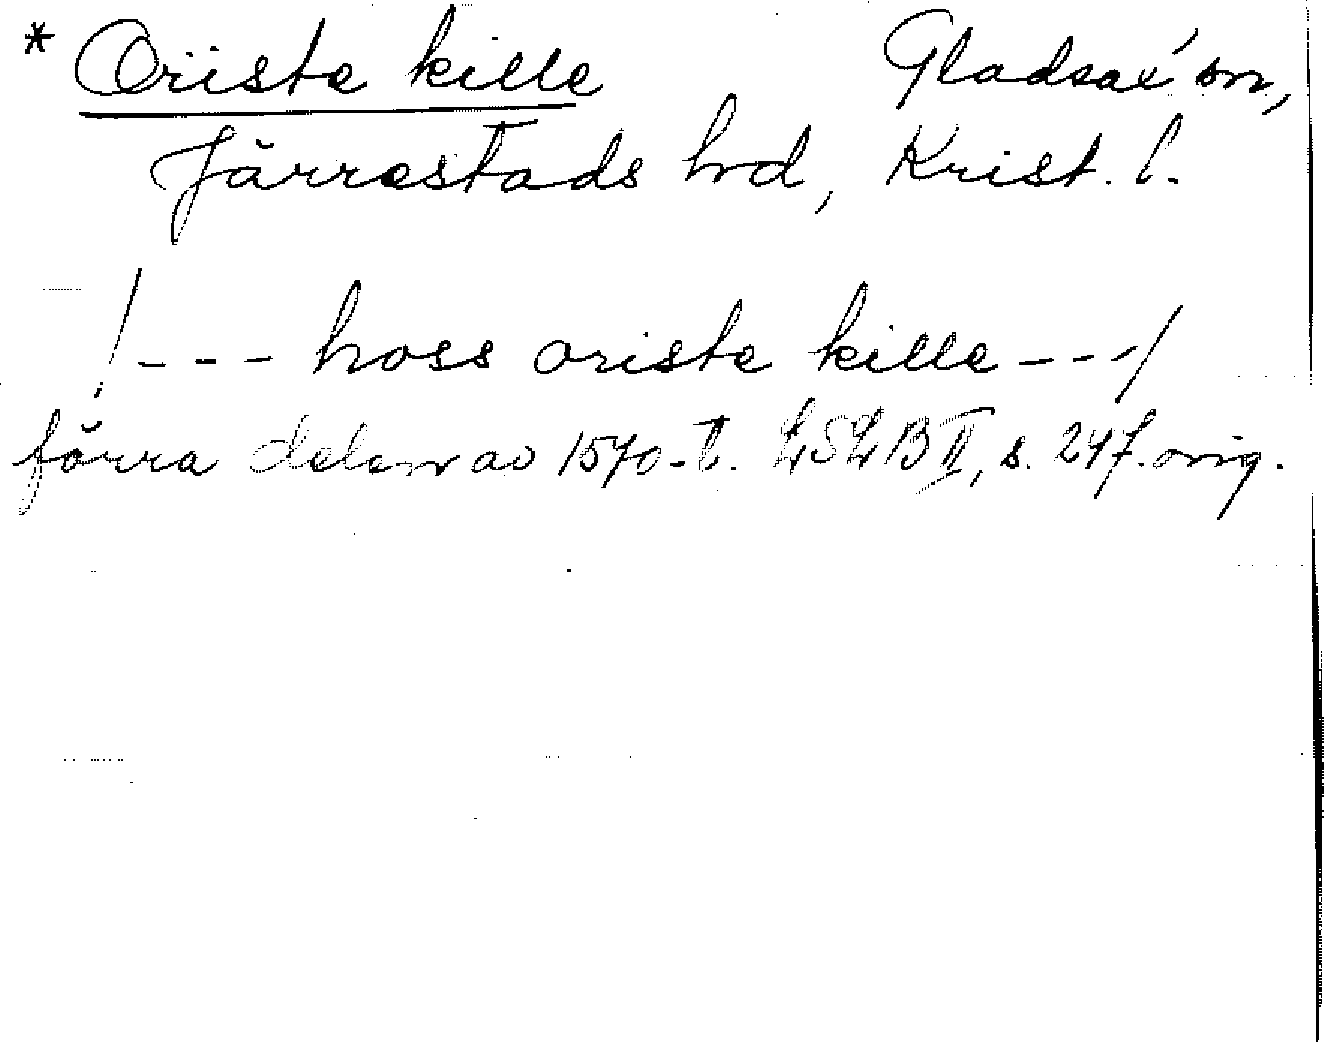 * Oriste kille Gladsax sn,
Järrestads hrd, Krist. l.
/--- hoss oriste kille ---/
förra delen av 1570-t. LSLB II, s. 247. orig.